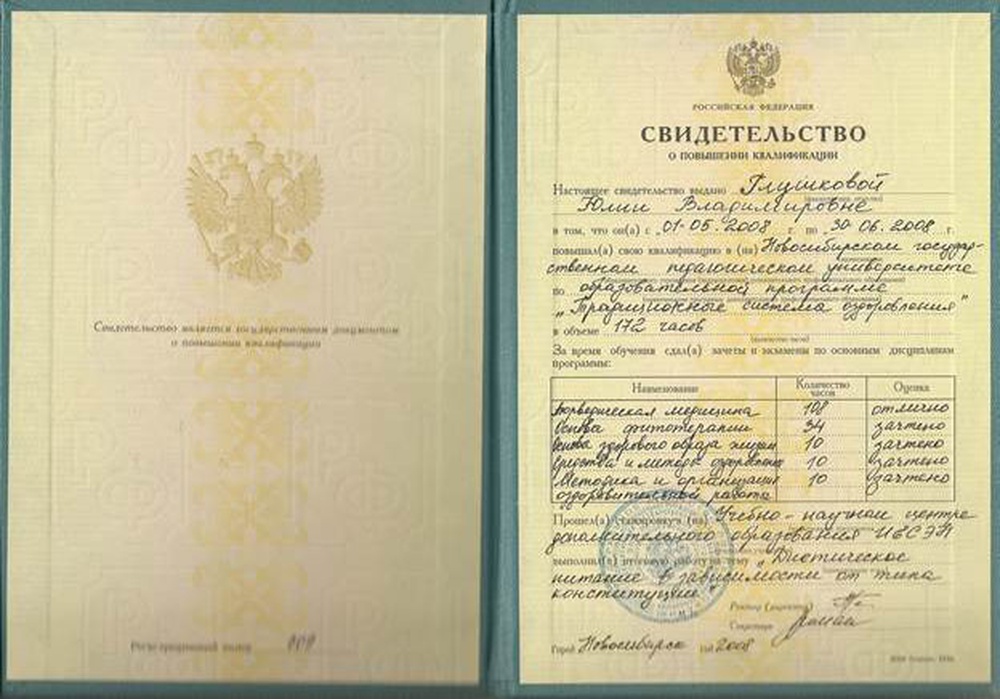 Свидетельство является государственным документом
о повышении квалификации
Регистрационный номер
РОССИЙСКАЯ ФЕДЕРАЦИЯ
СВИДЕТЕЛЬСТВО
О ПОВЫШЕНИИ КВАЛИФИКАЦИИ
Настоящее свидетельство выдано Глушковой
Юлии Владимировне
в том, что он(а) с „01-05.2008 г. по „30-06.2008 г.
повышал(а) свою квалификацию в (на) Новосибирском государ-
ственном педагогическом университете
по образовательной программе
„Традиционные система оздоровления"
в объеме 172 часов
(количество часов)
За время обучения сдал(а) зачеты и экзамены по основным дисциплинам
программы:
Наименование Количество часов Оценка
Аюрведическая медицина 108 отлично
Основа фитотерапии 34 зачтено
Основа здорового образа жизни 10 зачтено
Средства и методы оздоровления 10 зачтено
Методика и организация 10 зачтено
оздоровительной работы
Прошел(а) стажировку в (на) Учебно-научном центре
дополнительного образования
выполнил(а) итоговую работу на тему „Диетическое
питание в зависимости от типа
конституции"
Ректор (директор)
Секретарь
Город Новосибирск год 2008